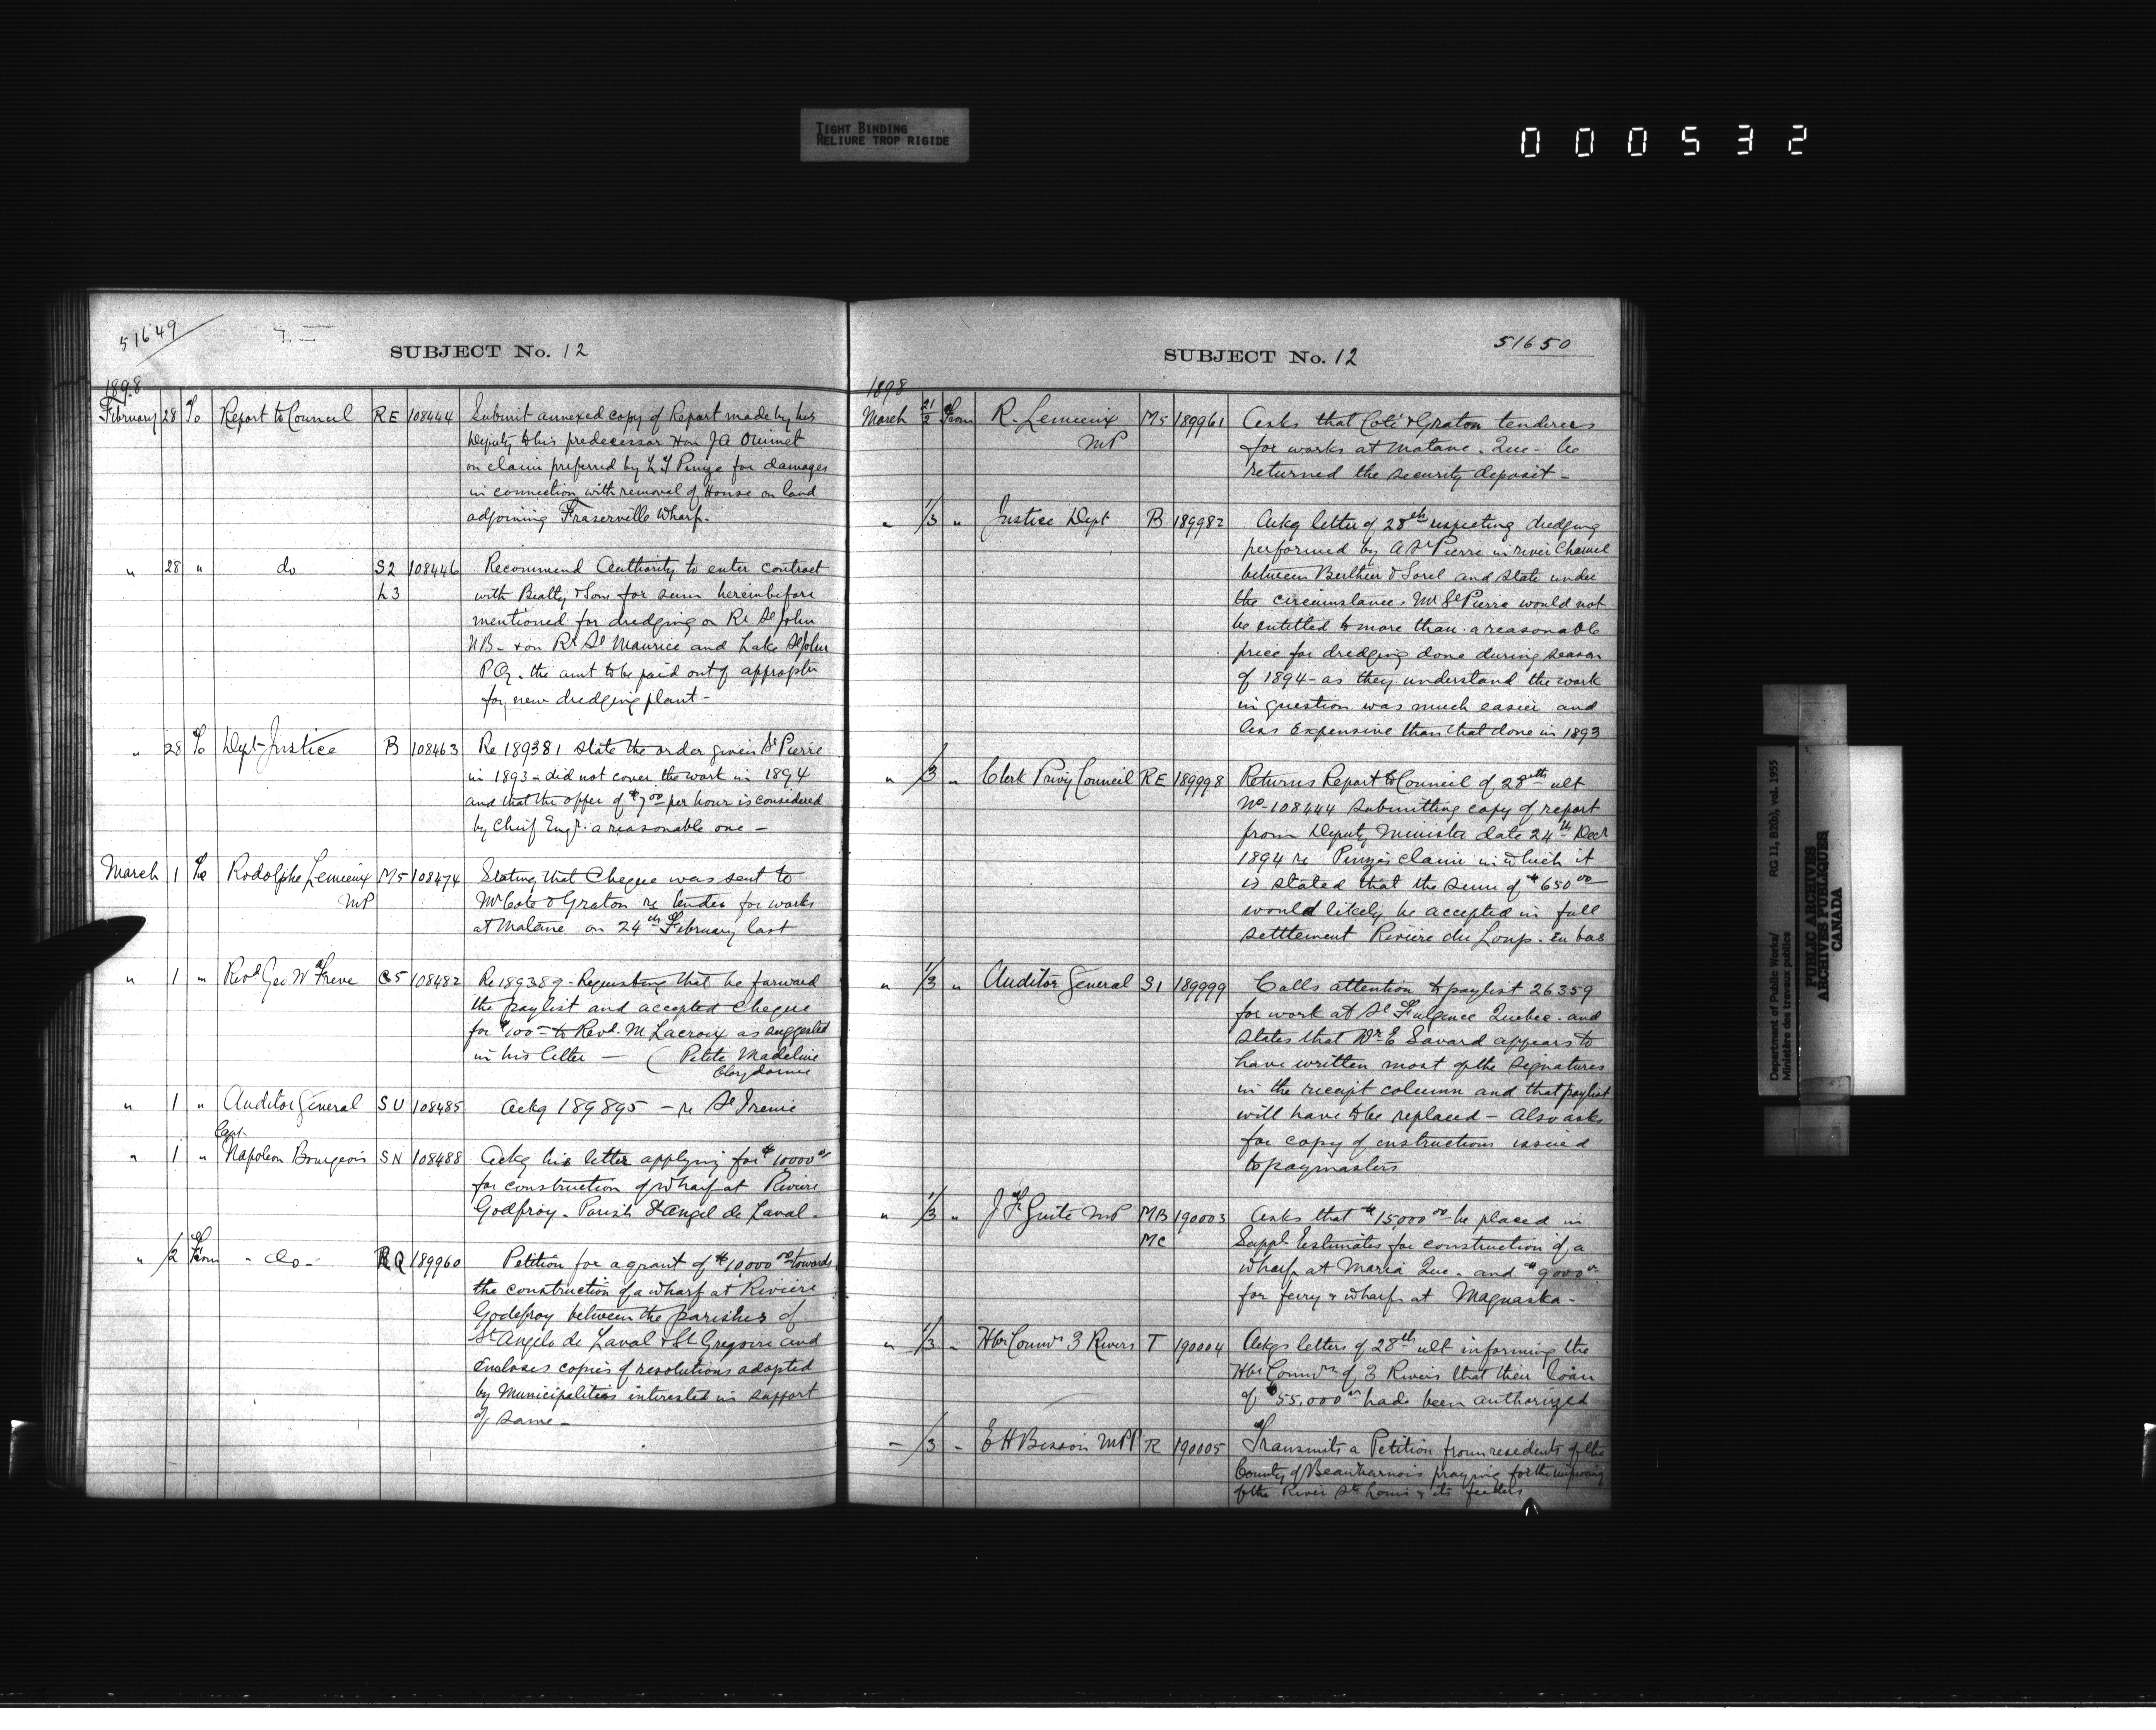 TIGHT BINDING
RELIURE TROP RIGIDE
000532
51649
SUBJECT No. 12
1898
February 28 To Report to Council RE 108444 Submit annexed copy of Report made by his
Deputy to his predecessor Hon J A Ouimet
on claim preferred by L Y Pinze for damages
in connection with removal of House on land
adjoining Fraserville Wharf.
" 28 " do S2 108446 Recommend Authority to enter contract
L3 with Beatty & Sons for sum hereinbefore
mentioned for dredging on Rr St John
NB - & on Rr St Maurice and Lake St John
P Q. the amt to be paid out of appropton
for new dredging plant -
" 28 To Dept Justice B 108463 Re 189381 state the order given St Pierre
in 1893 - did not cover the work in 1894
and that the offer of $7.00 per hour is considered
by Chief Engr. a reasonable one -
March 1 To Rodolphe Lemieux M5 108474 Stating that Cheque was sent to
MP Mr Coté & Graton re tender for works
at Matane on 24th February last
" 1 " Revd Geo W Freve C5 108482 Re 189389 - Requesting that he forward
the paylist and accepted Cheque
for $100 - to Revd. M Lacroix as suggested
in his letter - ( Petite Madeline
Cloydorme
" 1 " Auditor General SU 108485 Ackg 189895 - re St Irenie
Capt.
" 1 " Napoleon Bourgeois SN 108488 Ackg his letter applying for $10000 00
for construction of wharf at Riviere
Godfroy - Parish St Angel de Laval -
" /2 From - do - RQ 189960 Petition for a grant of $10000 00 towards
the construction of a wharf at Riviere
Godefroy between the parishes of
St Angele de Laval & St Gregoire and
Encloses copies of resolutions adopted
by Municipalities interested in support
of same -
51650
SUBJECT No. 12
1898
March 21/2 From R. Lemieux M5 189961 Asks that Coté & Graton tenderers
MP for works at Matane. Que - be
returned the security deposit -
" 1/3 " Justice Dept B 189982 Ackg letter of 28th respecting dredging
performed by A St Pierre in river Channel
between Berthier & Sorel and state under
the circumstances Mr St Pierre would not
be entitled to more than a reasonable
price for dredging done during season
of 1894 - as they understand the work
in question was much easier and
less Expensive than that done in 1893
" /3 " Clerk Privy Council RE 189998 Returns Report to Council of 28th ult
No - 108444 submitting copy of report
from Deputy Minister date 24th Decr
1894 re Pinze's claim in which it
is stated that the sum of $650 00
would likely be accepted in full
settlement Riviere du Loup - En bas
" 1/3 " Auditor General S1 189999 Calls attention to paylist 26359
for work at St Fulgence Quebec - and
states that Mr E Savard appears to
have written most of the signatures
in the receipt column and that paylist
will have to be replaced - Also asks
for copy of instructions issued
to paymasters
" 1/3 " J F Guite MP MB 190003 Asks that $15,000 00 be placed in
MC Suppl Estimates for construction of a
wharf at Maria Que - and $9000 00
for ferry & wharf at Maguaska -
" 1/3 - Hbr Commrs 3 Rivers T 190004 Ackgs letters of 28th ult informing the
Hbr Commrs of 3 Rivers that their loan
of $55.000 00 hade been authorized
- /3 - E H Bisson MPP R 190005 Transmits a Petition from residents of the
County of Beauharnois praying for the improving
of the River St Louis & its feeders
Department of Public Works/
Ministère des travaux publics
RG 11, B2(b), vol. 1955
PUBLIC ARCHIVES
ARCHIVES PUBLIQUES
CANADA